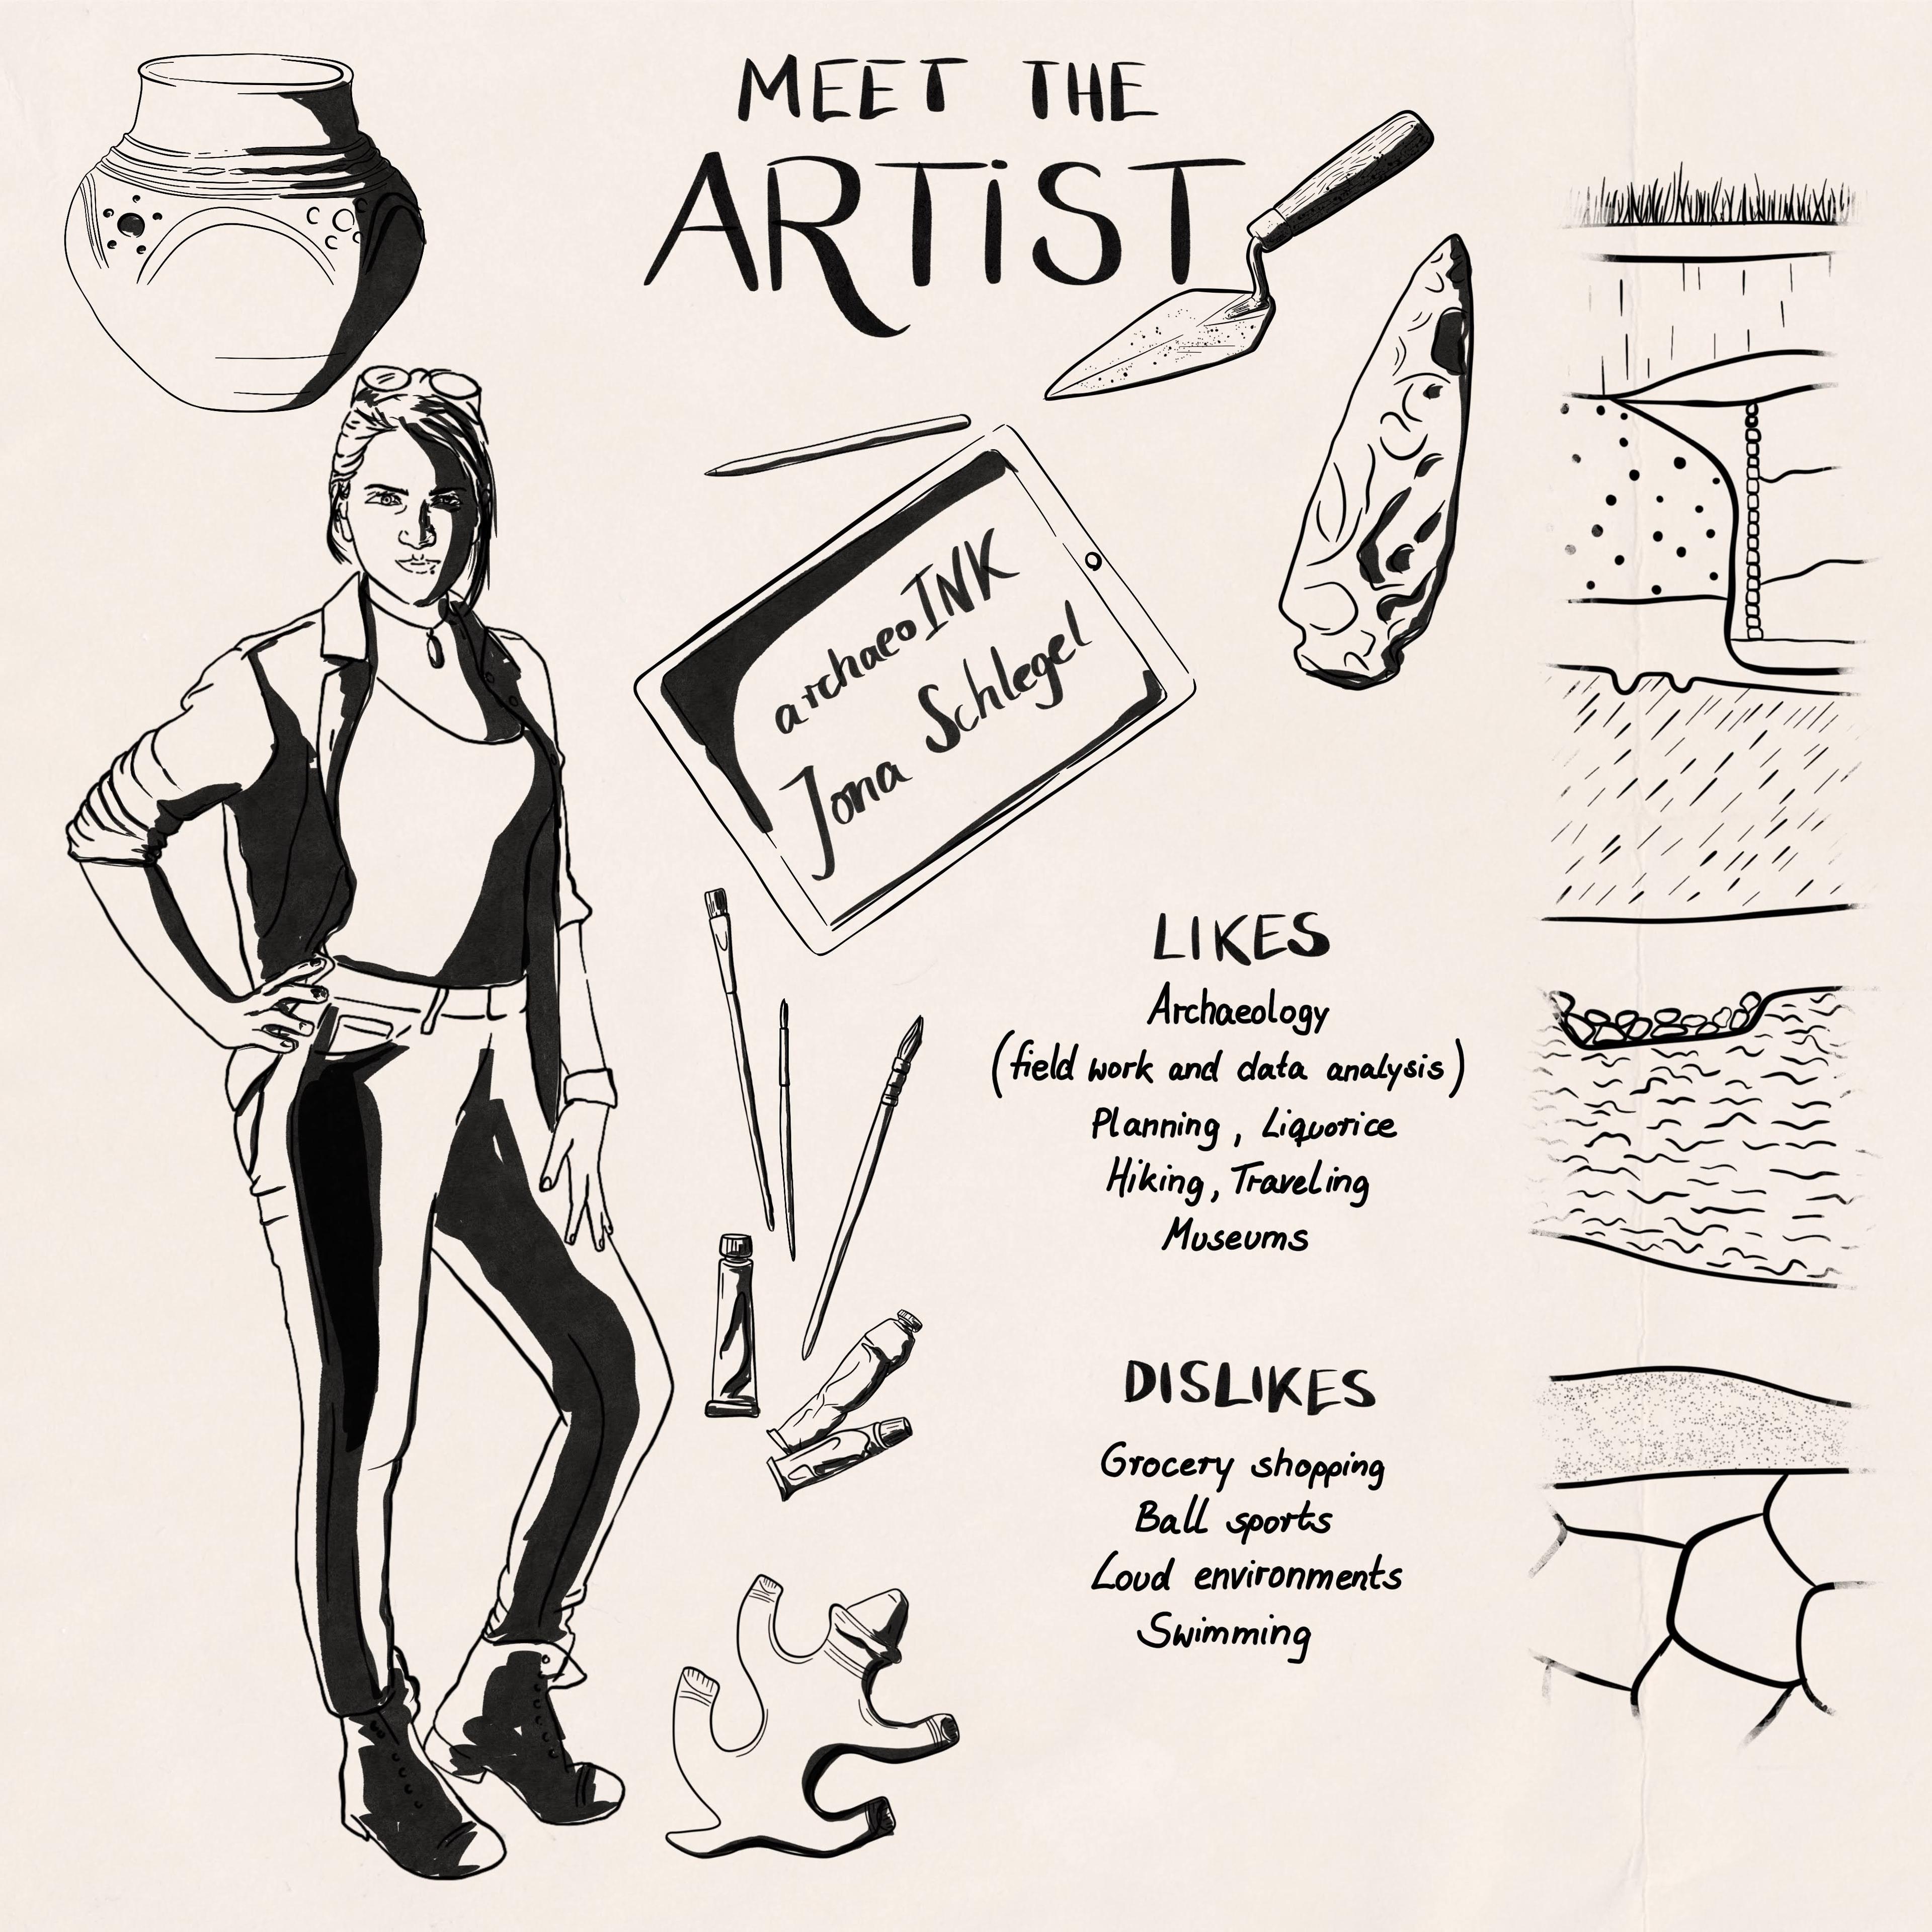 MEET THE
ARTiST
archaeoINK
Jona Schlegel
LIKES
Archaeology
(field work and data analysis)
Planning, Liquorice
Hiking, Traveling
Museums
DISLIKES
Grocery shopping
Ball sports
Loud environments
Swimming